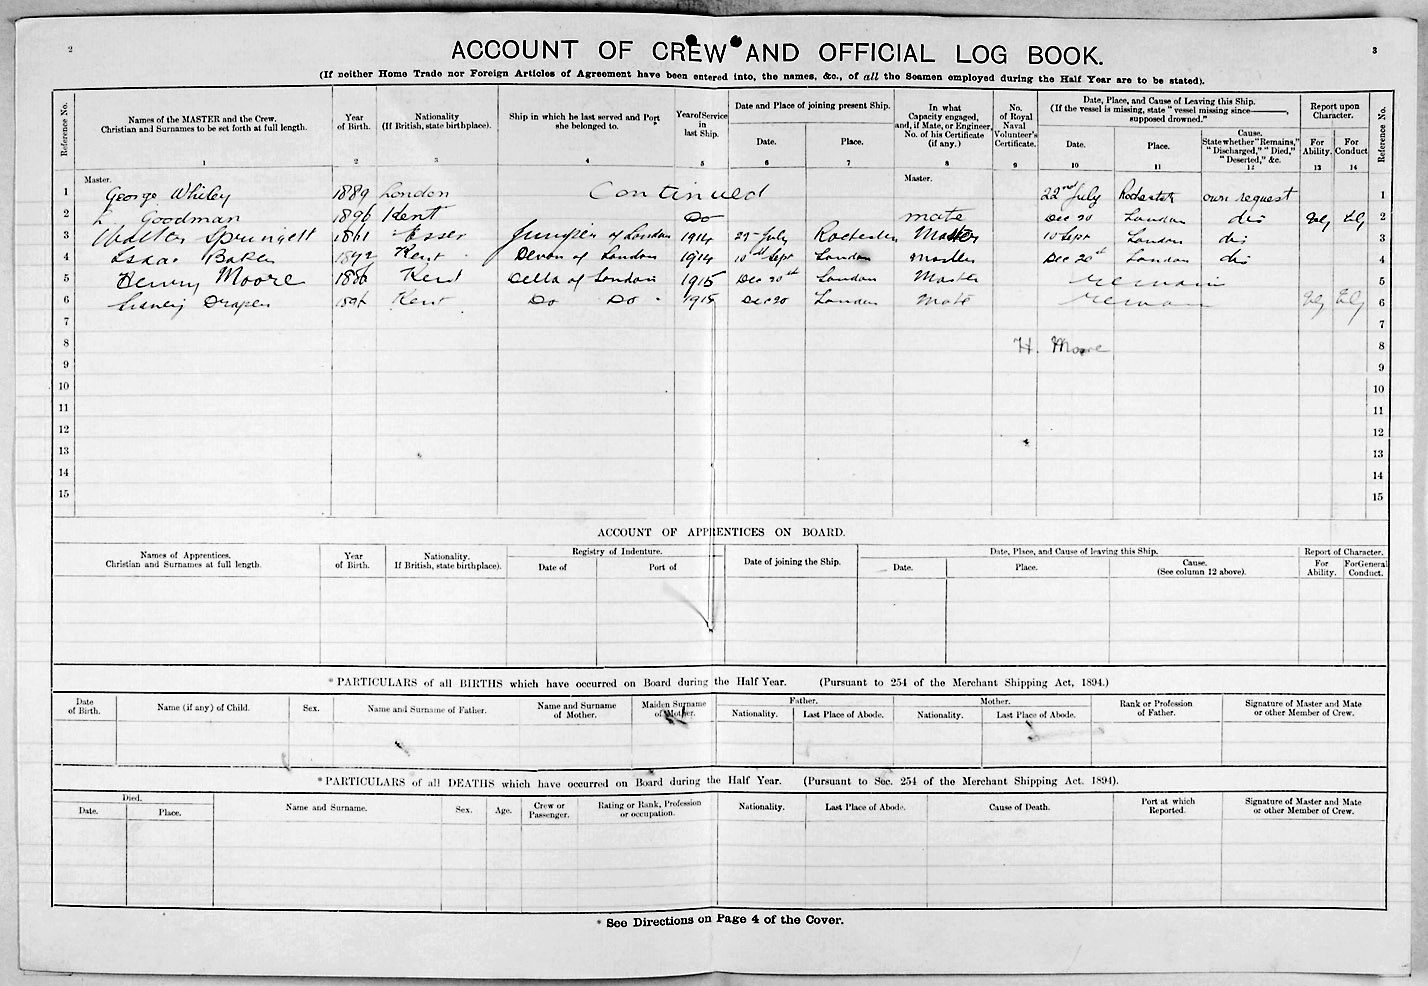 2
3
ACCOUNT OF CREW AND OFFICIAL LOG BOOK.
(If neither Home Trade nor Foreign Articles of Agreement have been entered into, the names, &c., of all the Seamen employed during the Half Year are to be stated).
Reference No. Names of the MASTER and the Crew. Christian and Surnames to be set forth at full length. Year of Birth. Nationality (If British, state birthplace). Ship in which he last served and Port she belonged to. Year of Service in last Ship. Date and Place of joining present Ship. Date. Place. In what Capacity engaged, and, if Mate, or Engineer, No. of his Certificate (if any.) No. of Royal Naval Volunteer's Certificate. Date, Place, and Cause of Leaving this Ship. (If the vessel is missing, state "vessel missing since———, supposed drowned." Date. Place. Cause. State whether "Remains," "Discharged," "Died," "Deserted," &c. Report upon Character. For Ability. For Conduct Reference No.
1 2 3 4 5 6 7 8 9 10 11 12 13 14
Master. Master.
1 George Whibey 1889 London Continued 22nd July Rochester own request 1
2 Goodman 1896 Kent Do mate Dec 20 London dis VG VG 2
3 Walter Springett 1861 Essex Juniper of London 1914 22 July Rochester Master 10 Sept London dis 3
4 Isaac Baker 1892 Kent Devon of London 1914 10th Sept London Master Dec 20st London dis 4
5 Henry Moore 1886 Kent Della of London 1915 Dec 20st London Master remain 5
6 Sidney Draper 1896 Kent Do Do 1915 Dec 20 London Mate remain VG VG 6
7 7
8 H. Moore 8
9 9
10 10
11 11
12 12
13 13
14 14
15 15
ACCOUNT OF APPRENTICES ON BOARD.
Names of Apprentices. Christian and Surnames at full length. Year of Birth. Nationality. If British, state birthplace). Registry of Indenture. Date of Port of Date of joining the Ship. Date, Place, and Cause of leaving this Ship. Date. Place. Cause. (See column 12 above). Report of Character. For Ability. For General Conduct.
* PARTICULARS of all BIRTHS which have occurred on Board during the Half Year. (Pursuant to 254 of the Merchant Shipping Act, 1894.)
Date of Birth. Name (if any) of Child. Sex. Name and Surname of Father. Name and Surname of Mother. Maiden Surname of Mother. Father. Nationality. Last Place of Abode. Mother. Nationality. Last Place of Abode. Rank or Profession of Father. Signature of Master and Mate or other Member of Crew.
* PARTICULARS of all DEATHS which have occurred on Board during the Half Year. (Pursuant to Sec. 254 of the Merchant Shipping Act. 1894).
Died. Date. Place. Name and Surname. Sex. Age. Crew or Passenger. Rating or Rank, Profession or occupation. Nationality. Last Place of Abode. Cause of Death. Port at which Reported. Signature of Master and Mate or other Member of Crew.
* See Directions on Page 4 of the Cover.